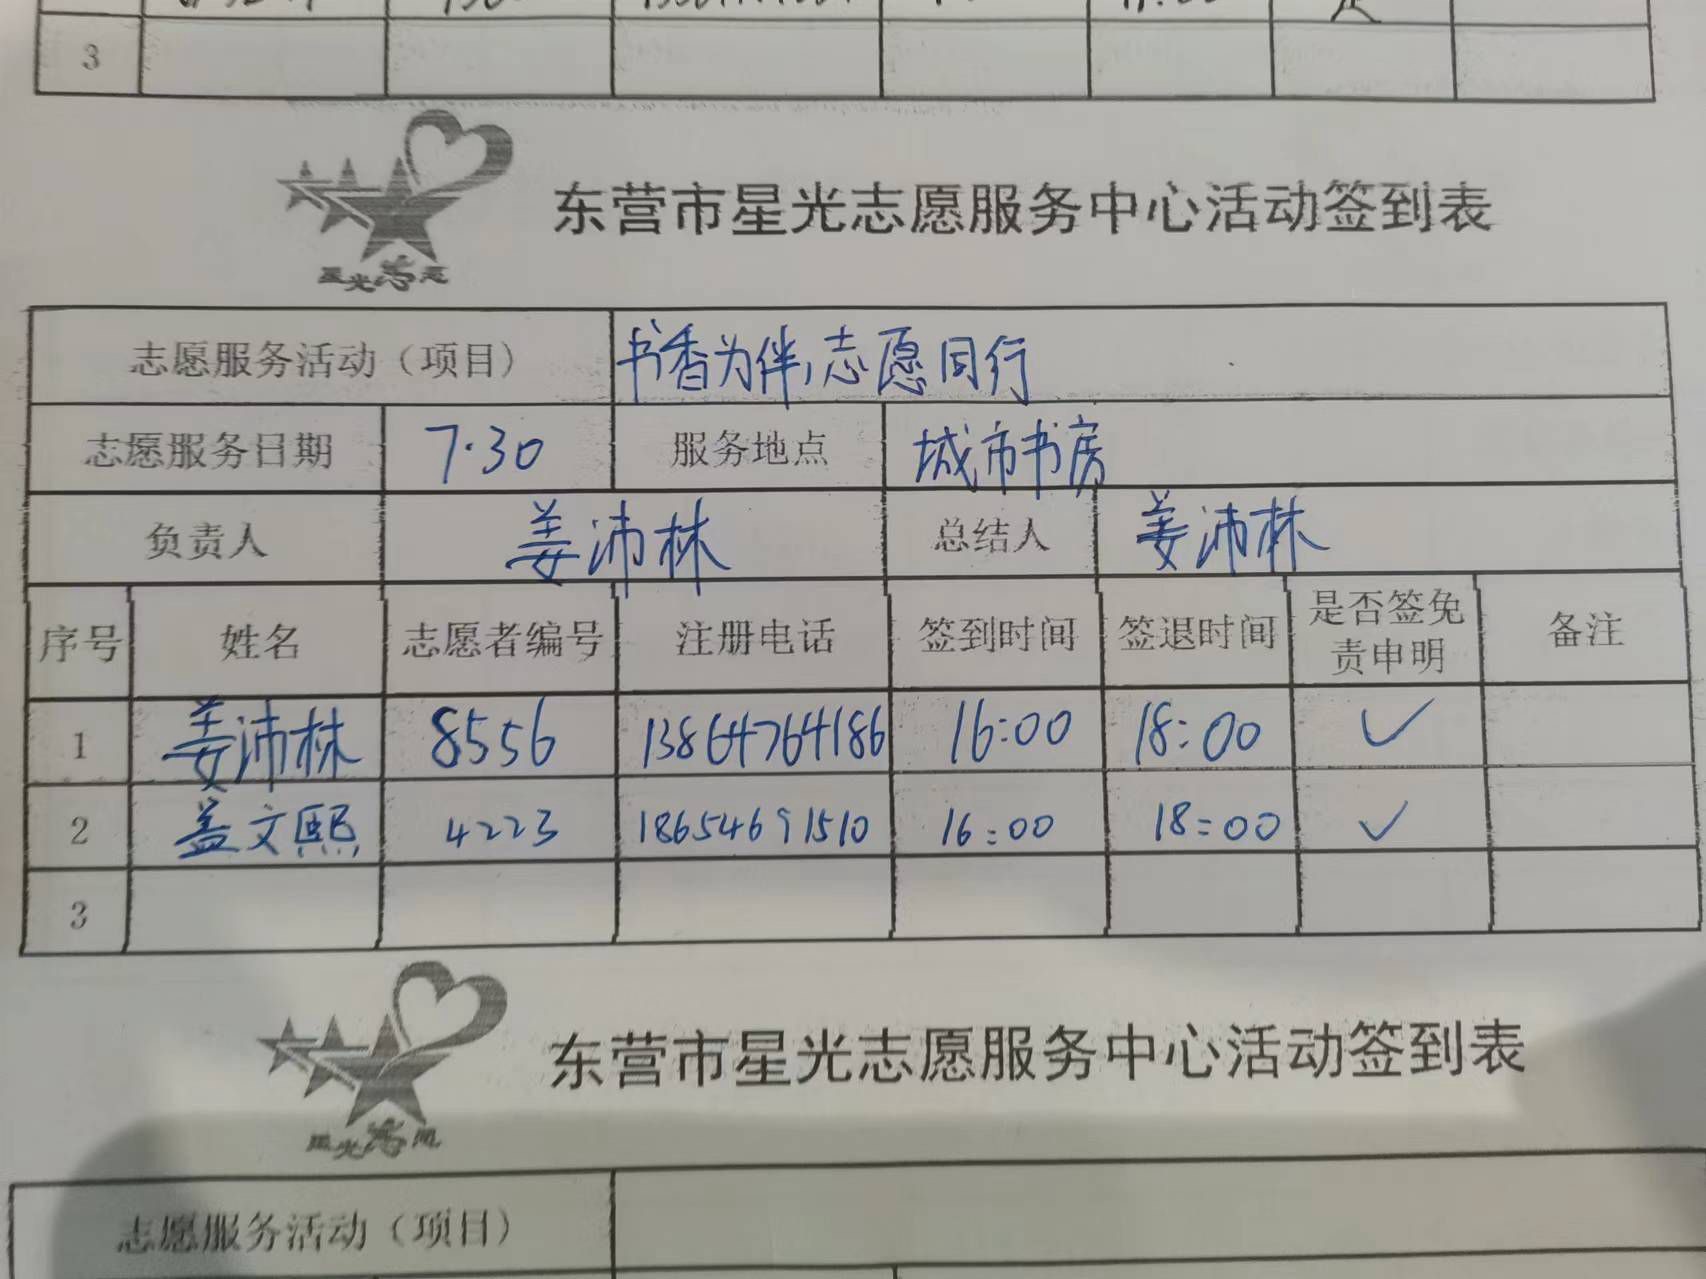 3
星光志愿
东营市星光志愿服务中心活动签到表
志愿服务活动（项目） 书香为伴,志愿同行
志愿服务日期 7.30 服务地点 城市书房
负责人 姜沛林 总结人 姜沛林
序号 姓名 志愿者编号 注册电话 签到时间 签退时间 是否签免责申明 备注
1 姜沛林 8556 13864764186 16:00 18:00 ✓
2 盖文熙 4223 18654691510 16:00 18:00 ✓
3
星光志愿
东营市星光志愿服务中心活动签到表
志愿服务活动（项目）